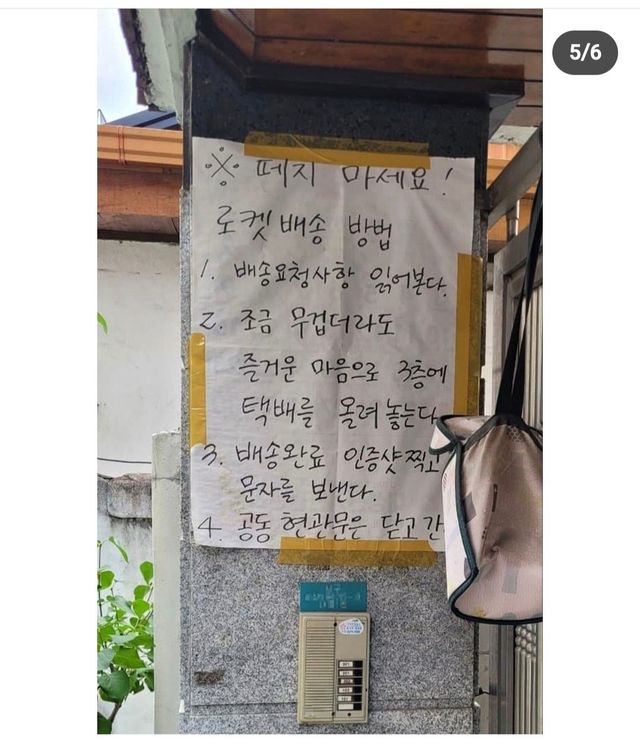 5/6
※ 떼지 마세요!
로켓배송 방법
1. 배송요청사항 읽어본다.
2. 조금 무겁더라도
즐거운 마음으로 3층에
택배를 올려놓는다
3. 배송완료 인증샷찍고
문자를 보낸다.
4. 공동현관문은 닫고간